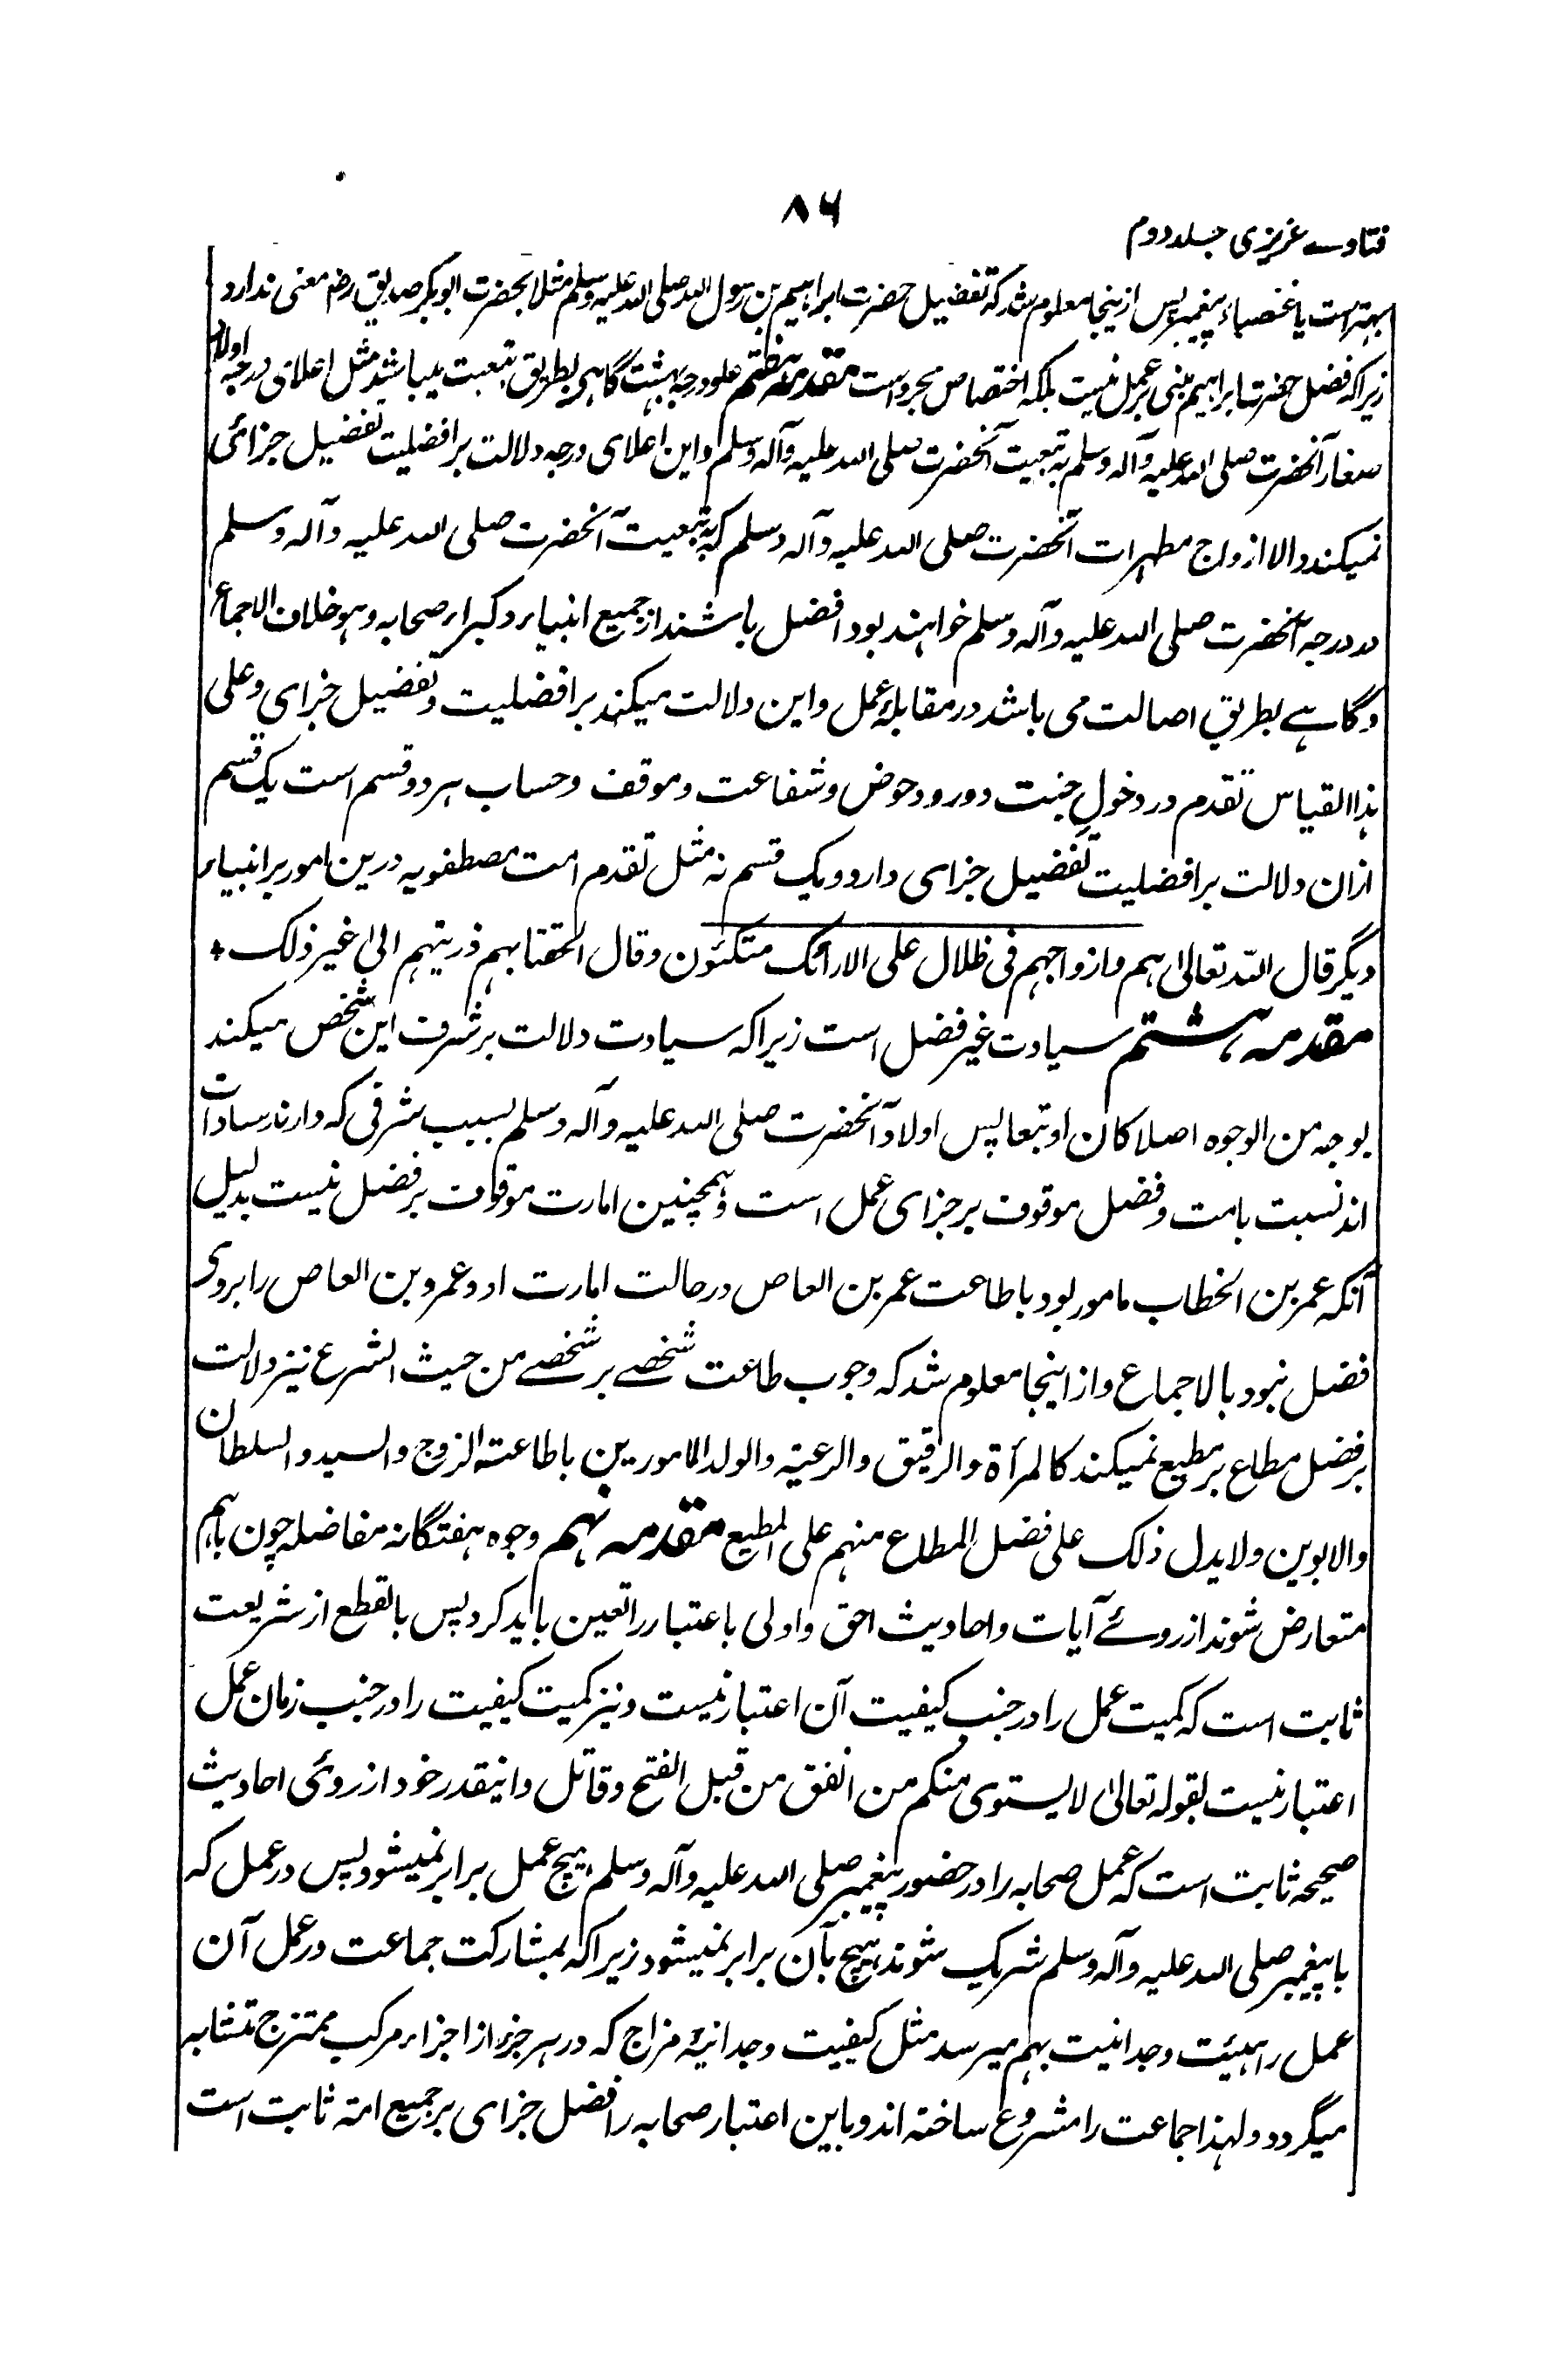 ۸۶
فتاوے عزیزی جلد دوم
بہتر است یا عصباء پیغمبر پس ازینجا معلوم شد که تفضیل حضرت ابراہیم بن رسول اللہ صلی اللہ علیہ وسلم مثلا بحضرت ابوبکر صدیق رض معنی ندارد
زیرا که فضل حضرت ابراہیم مبنی بر عمل نیست بلکه اختصاص مجرد است مقدمہ ہفتم علو درجہ بہشت گاہی بطریق تبعیت میباشد مثل اعلای درجہ اولاد
صغار آنحضرت صلی اللہ علیہ وآلہ وسلم بہ تبعیت آنحضرت صلی اللہ علیہ وآلہ وسلم و این اعلای درجہ دلالت بر افضلیت تفضیل جزائی
نمیکند والا ازواج مطہرات آنحضرت صلی اللہ علیہ وآلہ وسلم که بہ تبعیت آنحضرت صلی اللہ علیہ وآلہ وسلم
در درجہ آنحضرت صلی اللہ علیہ وآلہ وسلم خواہند بود افضل باشند از جمیع انبیاء و کبراء صحابہ و ہو خلاف الاجماع
و گاہے بطریق اصالت می باشد در مقابلہ عمل و این دلالت میکند بر افضلیت و تفضیل جزای و علی
ہذا القیاس تقدم در دخول جنت و ورود حوض و شفاعت و موقف و حساب ہر دو قسم است یک قسم
ازان دلالت بر افضلیت تفضیل جزای دارد و یک قسم نہ مثل تقدم امت مصطفویہ درین امور بر انبیاء
دیگر قال اللہ تعالیٰ ہم وازواجہم فی ظلال علی الارائک متکئون وقال الحقنا بہم ذریتہم الیٰ غیر ذلک ٭
مقدمہ ہشتم سیادت غیر فضل است زیرا کہ سیادت دلالت بر شرف این شخص میکند
بوجہ من الوجوہ اصلا کان او تبعا پس اولاد آنحضرت صلی اللہ علیہ وآلہ وسلم بسبب شرفی که دارند سادات
اند نسبت بامت و فضل موقوف بر جزای عمل است و ہمچنین امارت موقوف بر فضل نیست بدلیل
آنکہ عمر بن الخطاب مامور بود باطاعت عمر بن العاص در حالت امارت او و عمرو بن العاص را بروی
فضل نبود بالاجماع و از اینجا معلوم شد کہ وجوب طاعت شخصے بر شخصے من حیث الشرع نیز دلالت
بر فضل مطاع بر مطیع نمیکند کالمرأۃ والرقیق والرعیۃ والولد المامورین باطاعۃ الزوج والسید والسلطان
والابوین ولا یدل ذلک علی فضل المطاع منہم علی المطیع مقدمہ نہم وجوہ ہفتگانہ مفاضلہ چون باہم
متعارض شوند از روئے آیات و احادیث احق و اولی باعتبار را تعین باید کرد پس بالقطع از شریعت
ثابت است که کمیت عمل را در جنب کیفیت آن اعتبار نیست و نیز کمیت کیفیت را در جنب زمان عمل
اعتبار نیست لقولہ تعالیٰ لا یستوی منکم من انفق من قبل الفتح وقاتل و اینقدر خود از روئی احادیث
صحیحہ ثابت است که عمل صحابہ را در حضور پیغمبر صلی اللہ علیہ وآلہ وسلم ہیچ عمل برابر نمیشود پس در عمل که
با پیغمبر صلی اللہ علیہ وآلہ وسلم شریک شوند ہیچ بآن برابر نمیشود زیرا کہ بمشارکت جماعت در عمل آن
عمل را ہیئت وجدانیت بہم میرسد مثل کیفیت وجدانیۂ مزاج که در ہر جزء از اجزاء مرکب ممتزج متشابہ
میگردد و لہذا جماعت را مشروع ساختہ اند و باین اعتبار صحابہ را فضل جزای بر جمیع امتہ ثابت است